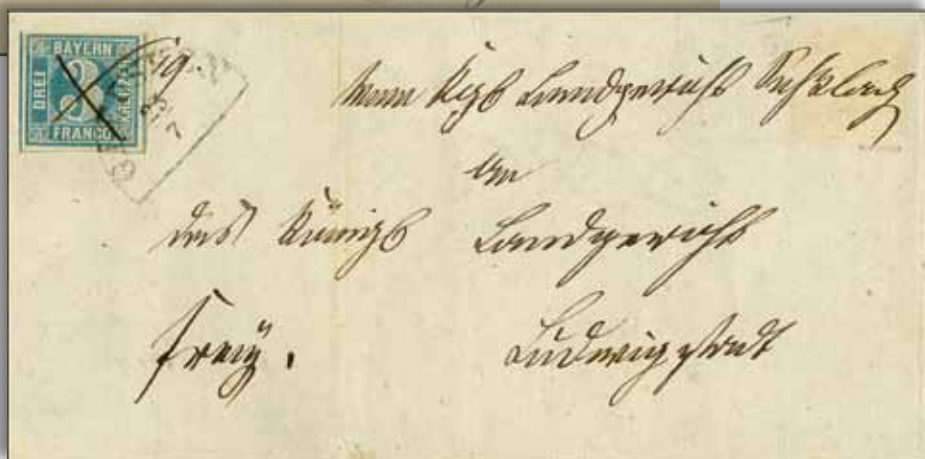 BAYERN
DREI
KREUZER
FRANCO
19.
7
Vom Kgl Landgericht Seßlach
An
das Königl Landgericht
frey. Ludwigstadt